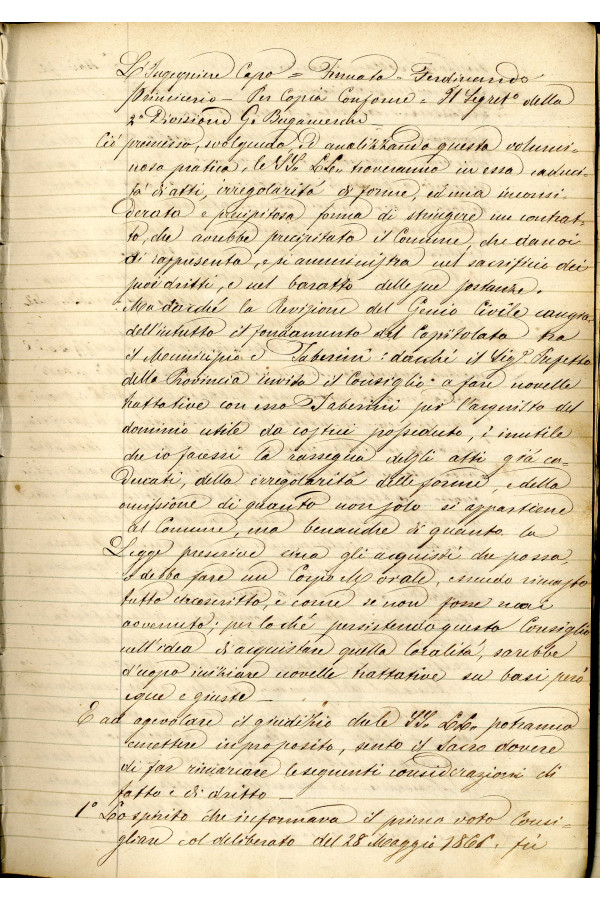 L'Ingegniere Capo = Firmato = Ferdinando
Primicerio — Per Copia Conforme = Il Segret.o della
2a Divisione G. Bugamenchi
Ciò premesso, svolgendo, ed analizzando questa volumi-
nosa pratica, le SS. LL. troveranno in essa caduci-
tà di atti, irregolarità di forme, ed una inconsi-
derata e precipitosa forma di stringere un contrat-
to, che avrebbe precipitato il Comune, che da noi
si rappresenta, e si amministra nel sacrificio dei
suoi dritti, e nel baratto delle sue sostanze.
Ma dacché la Revisione del Genio Civile cangia
dell'intutto il fondamento del Capitolato tra
il Municipio e Taberini: dacché il Sig.r Prefetto
della Provincia invita il Consiglio a fare novelle
trattative con esso Taberini per l'acquisto del
dominio utile da costui posseduto, è inutile
che io facessi la rassegna degli atti già ca-
ducati, della irregolarità delle forme, e della
omissione di quanto non solo si appartiene
al Comune, ma benanche di quanto la
Legge prescrive circa gli acquisti che possa,
e debba fare un Corpo Morale, essendo rimasto
tutto circoscritto, e come se non fosse mai
avvenuto; per lo ché persistendo questo Consiglio
nell'idea di acquistare quella località, sarebbe
d'uopo iniziare novelle trattative su basi però
eque e giuste —
E ad agevolare il giudizio che le SS. LL. potranno
emettere in proposito, sento il sacro dovere
di far rimarcare le seguenti considerazioni di
fatto e di dritto —
1° Lo spirito che informava il primo voto Consi-
gliare col deliberato del 28 Maggio 1866. fu